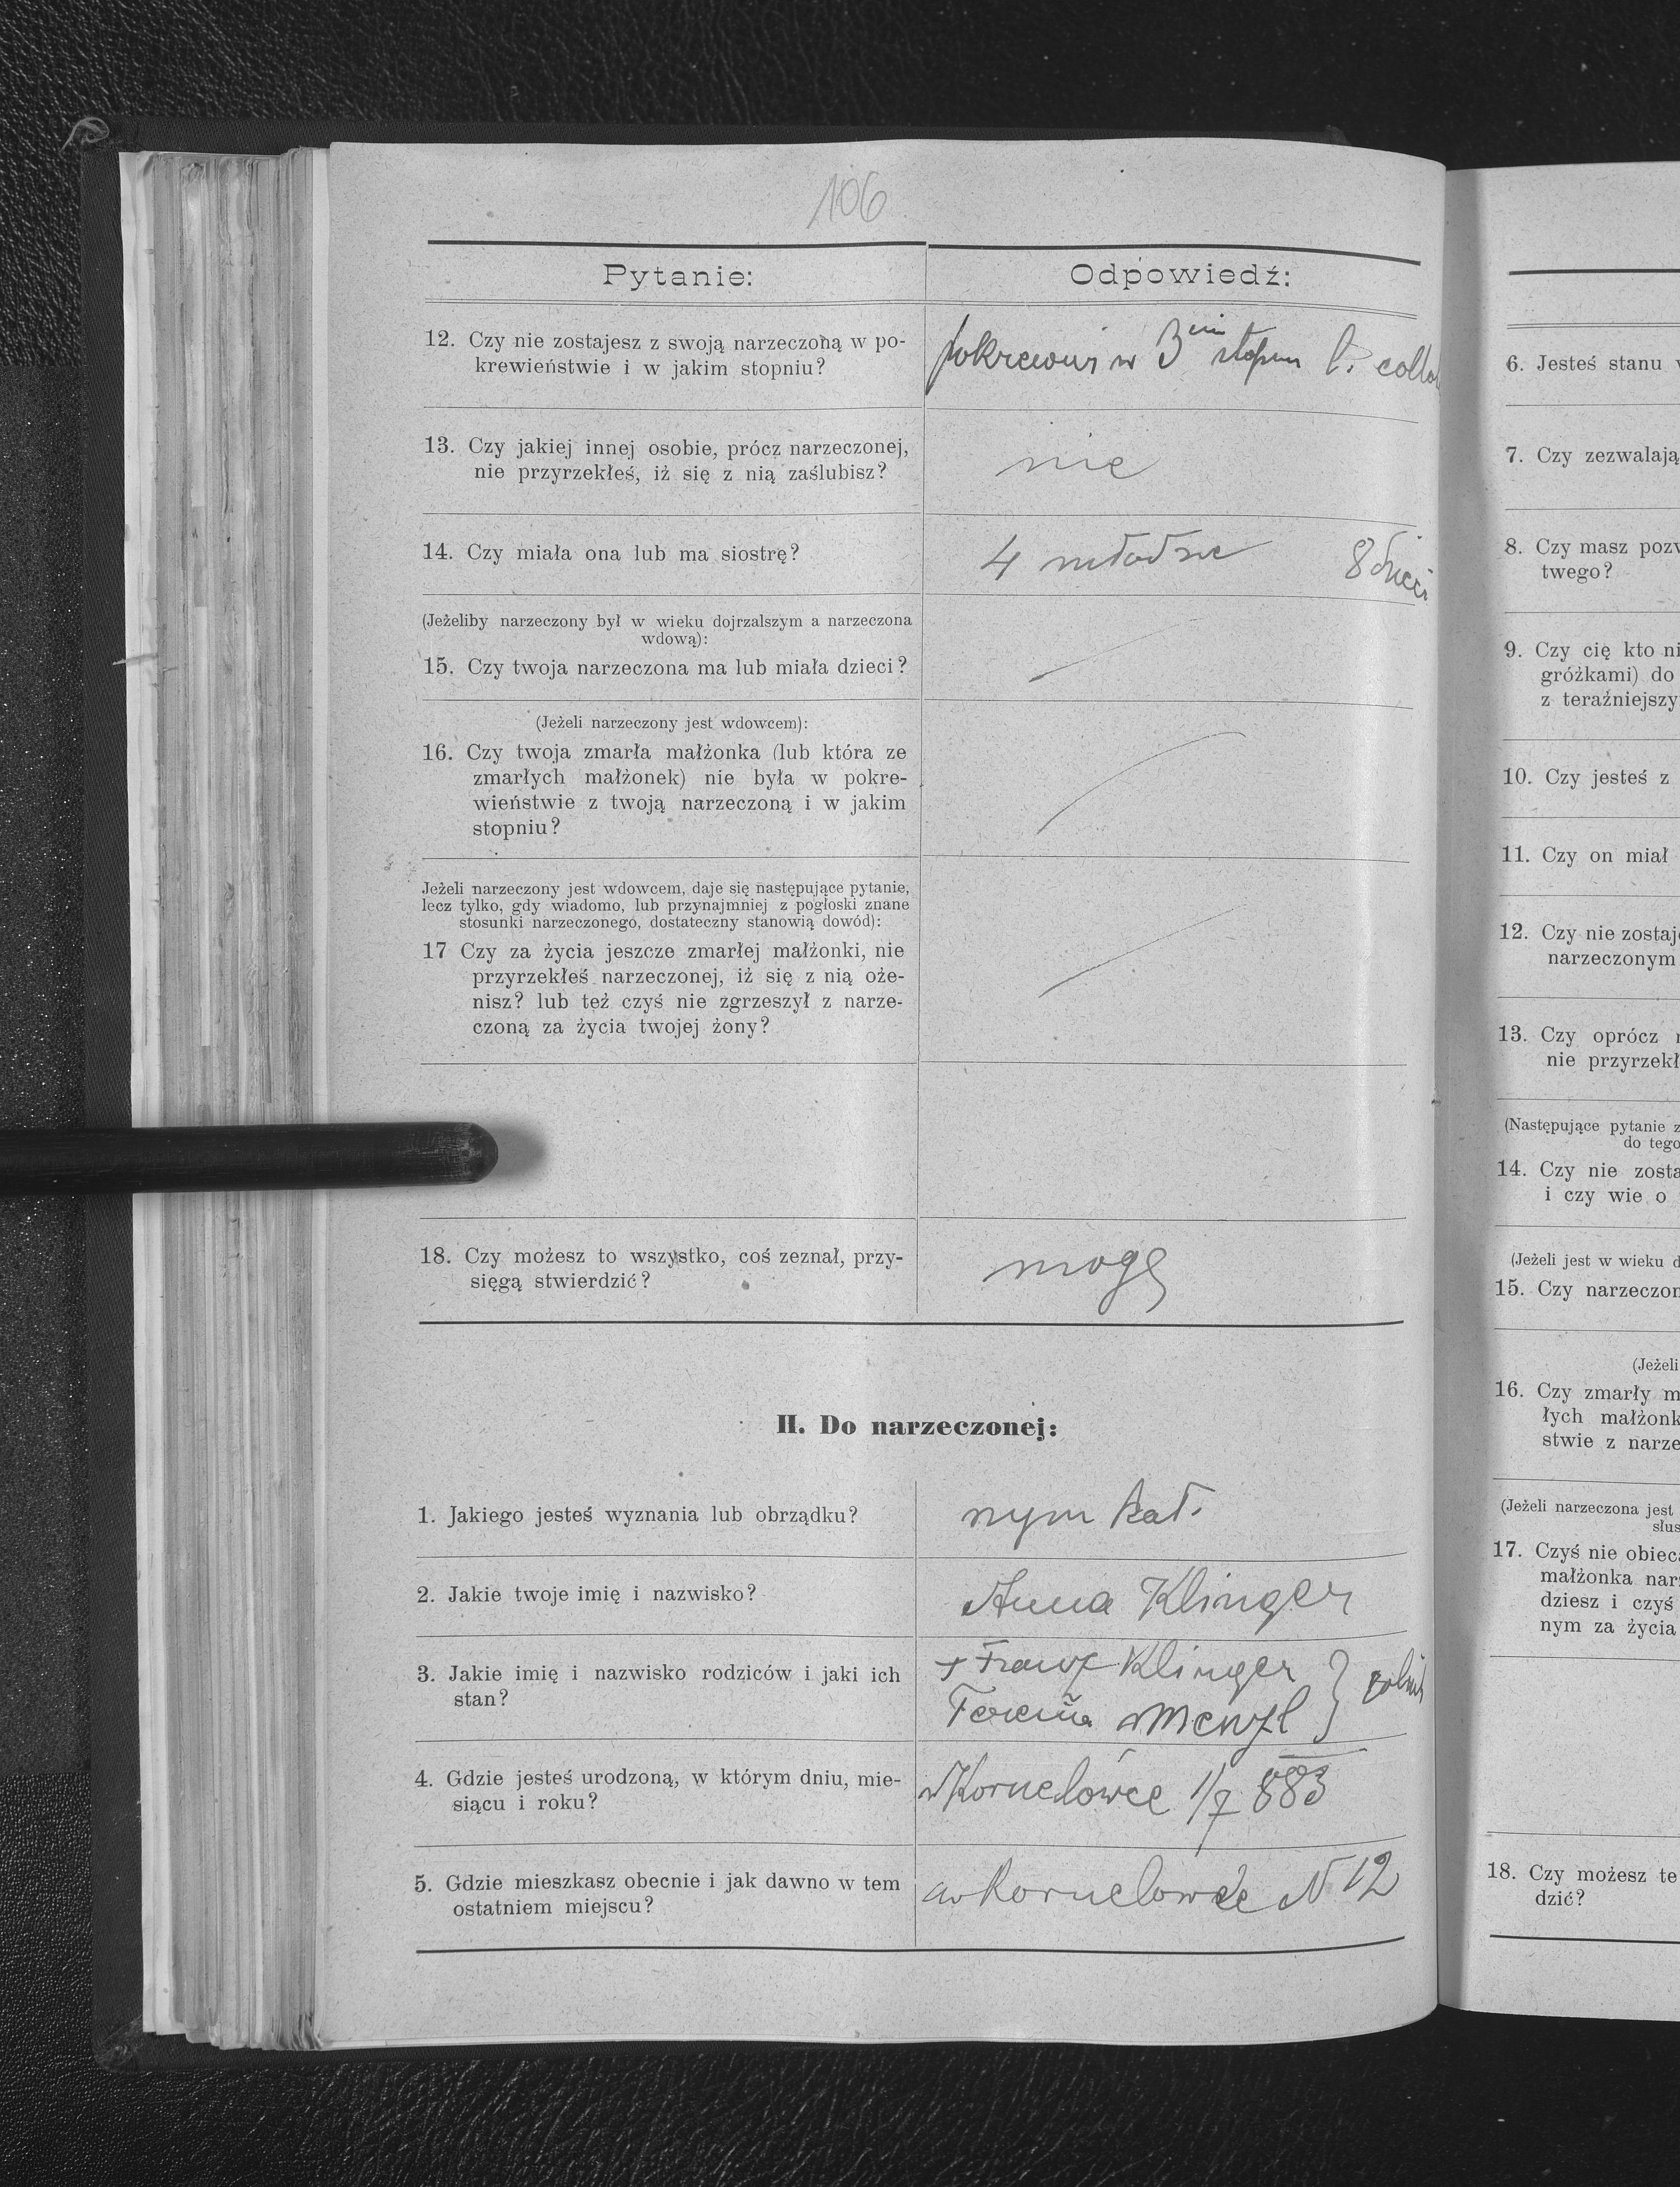 106
Pytanie:
Odpowiedź:
12. Czy nie zostajesz z swoją narzeczoną w po-
krewieństwie i w jakim stopniu?
pokrewni w 3 stopniu l. coll
13. Czy jakiej innej osobie, prócz narzeczonej,
nie przyrzekłeś, iż się z nią zaślubisz?
nie
14. Czy miała ona lub ma siostrę?
4 młodsze 8 dzieci
(Jeżeliby narzeczony był w wieku dojrzalszym a narzeczona
wdową):
15. Czy twoja narzeczona ma lub miała dzieci?
(Jeżeli narzeczony jest wdowcem):
16. Czy twoja zmarła małżonka (lub która ze
zmarłych małżonek) nie była w pokre-
wieństwie z twoją narzeczoną i w jakim
stopniu?
Jeżeli narzeczony jest wdowcem, daje się następujące pytanie,
lecz tylko, gdy wiadomo, lub przynajmniej z pogłoski znane
stosunki narzeczonego, dostateczny stanowią dowód):
17 Czy za życia jeszcze zmarłej małżonki, nie
przyrzekłeś narzeczonej, iż się z nią oże-
nisz? lub też czyś nie zgrzeszył z narze-
czoną za życia twojej żony?
18. Czy możesz to wszystko, coś zeznał, przy-
sięgą stwierdzić?
mogę
II. Do narzeczonej:
1. Jakiego jesteś wyznania lub obrządku?
rzym kat.
2. Jakie twoje imię i nazwisko?
Anna Klinger
3. Jakie imię i nazwisko rodziców i jaki ich
stan?
+ Franz Klinger
Menzl
4. Gdzie jesteś urodzoną, w którym dniu, mie-
siącu i roku?
w Kornelówce 1/7 883
5. Gdzie mieszkasz obecnie i jak dawno w tem
ostatniem miejscu?
w Kornelowce N 12
6. Jesteś stanu
7. Czy zezwalają
8. Czy masz pozw
twego?
9. Czy cię kto ni
gróżkami) do
z teraźniejszy
10. Czy jesteś z
11. Czy on miał
12. Czy nie zostaj
narzeczonym
13. Czy oprócz
nie przyrzekł
(Następujące pytanie z
do tego
14. Czy nie zosta
i czy wie o
(Jeżeli jest w wieku d
15. Czy narzeczon
(Jeżeli
16. Czy zmarły m
łych małżonk
stwie z narze
(Jeżeli narzeczona jest
słus
17. Czyś nie obiec
małżonka nar
dziesz i czyś
nym za życia
18. Czy możesz te
dzić?